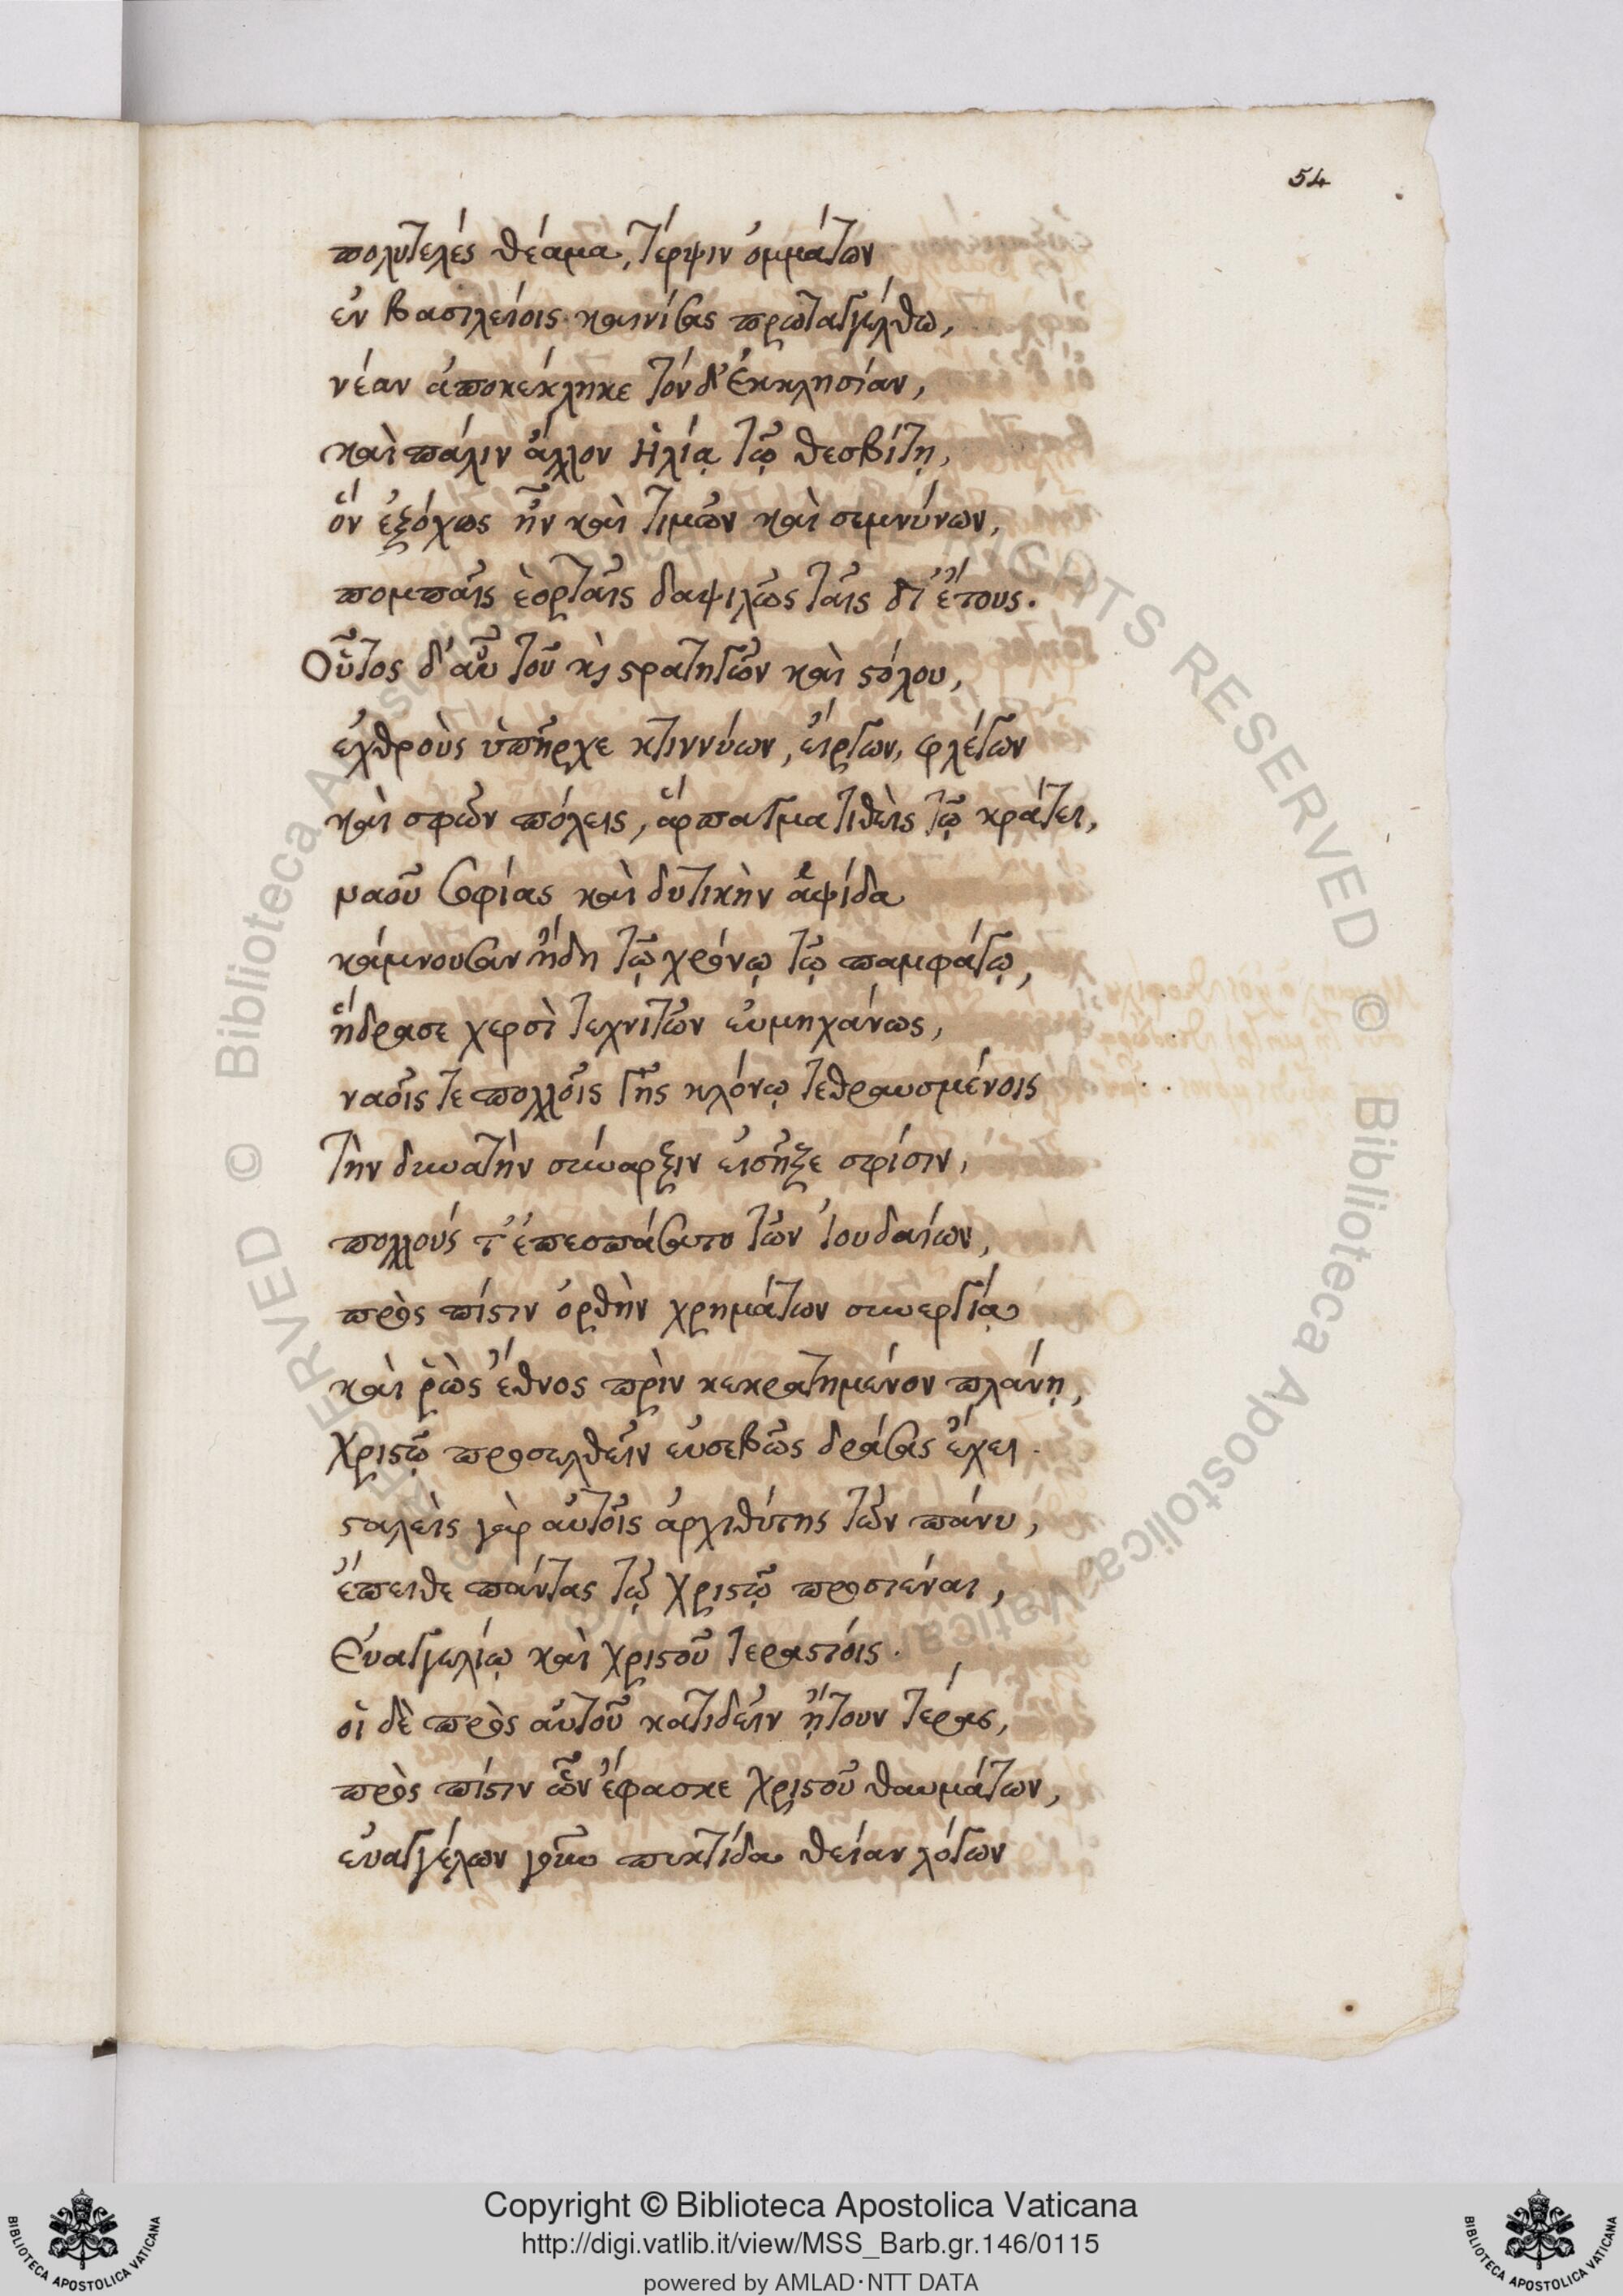 54
πολυτελές θέαμα, τέρψιν ὀμμάτων
ἐν βασιλείοις καινίσας πρωταγγέλθω,
νέαν ἀποκέκληκε τόνδ' ἐκκλησίαν,
καὶ πάλιν ἄλλον Ἠλίᾳ τῷ θεσβίτῃ,
ὅν ἐξόχως ἦν καὶ τιμῶν καὶ σεμνύνων,
πομπαῖς ἑορταῖς δαψιλῶς ταῖς δι' ἔτους.
Οὗτος δ' αὖ τοῦ κὶ στρατηγῶν καὶ στόλου,
ἐχθροὺς ὑπῆρχε κτιννύων, εἴργων, φλέγων
καὶ σφῶν πόλεις, ἅρπαγμα τιθεὶς τῷ κράτει,
ναοῦ σοφίας καὶ δυτικὴν ἁψίδα
κάμνουσαν ἤδη τῷ χρόνῳ τῷ παμφάγῳ,
ἥδρασε χερσὶ τεχνιτῶν εὐμηχάνως,
ναοῖς τε πολλοῖς γῆς κλόνῳ τεθραυσμένοις
τὴν δυνατὴν σύναρξιν εἰσῆξε σφίσιν,
πολλούς τ' ἐπεσπάσατο τῶν Ἰουδαίων,
πρὸς πίστιν ὀρθὴν χρημάτων συνεργίᾳ
καὶ ῥὼς ἔθνος πρὶν κεκρατημένον πλάνῃ,
χριστῷ προσελθεῖν εὐσεβῶς δράσας ἔχει.
σταλεὶς γὰρ αὐτοῖς ἀρχιθύτης τῶν πάνυ,
ἔπειθε πάντας τῷ χριστῷ προσιέναι,
Εὐαγγελίῳ καὶ χριστοῦ τεραστίοις.
οἱ δὲ πρὸς αὐτοῦ κατιδεῖν ᾔτουν τέρας,
πρὸς πίστιν ὧν ἔφασκε χριστοῦ θαυμάτων,
εὐαγγέλων γοῦν πυκτίδα θείαν λόγων
Copyright © Biblioteca Apostolica Vaticana
http://digi.vatlib.it/view/MSS_Barb.gr.146/0115
powered by AMLAD·NTT DATA
BIBLIOTECA APOSTOLICA VATICANA
BIBLIOTECA APOSTOLICA VATICANA